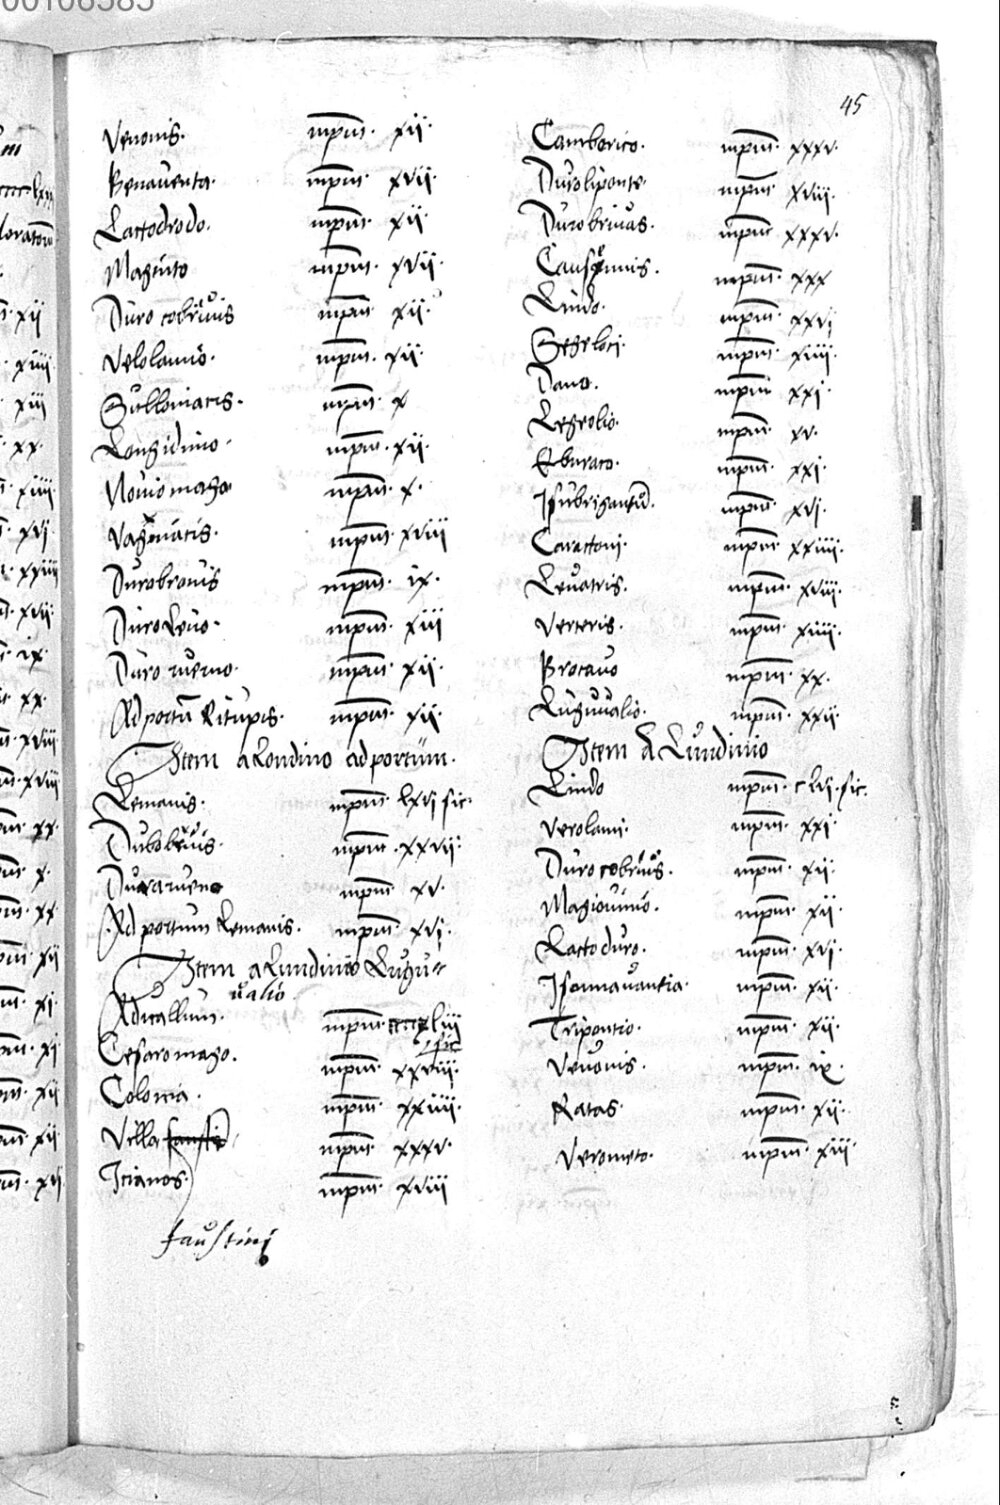 00108585
45
Venonis. mpm. xii.
Benauenta. mpm. xvii.
Lactodrodo. mpm. xii.
Maginto mpm. xvii.
Duro cobriuis mpm. xii.
Velolamio. mpm. xii.
Sulloniacis. mpm. x
Longidinio. mpm. xii.
Nouio mago mpm. x.
Vagniacis. mpm. xviii
Durobrouis mpm. ix.
Duro Leuo. mpm. xiii
Duro ruerno. mpm. xii.
Ad portū Ritupis. mpm. xii.
Item a Londino ad portum.
Lemanis. mpm. lxvi sic.
Dubobrius. mpm. xxvii.
Durarueno mpm. xv.
Ad portum Lemanis. mpm. xvi.
Item a Lundinio Lugu-
ualio
Ad uallum. mpm. liii
sic
Cesaromago. mpm. xxviii.
Colonia. mpm. xxiiii.
Villa mpm. xxxv.
Icianos. mpm. xviii
faustini
Camborico. mpm. xxxv.
Duroliponte. mpm. xviii.
Durobriuas. mpm. xxxv.
Causennis. mpm. xxx
Lindo. mpm. xxvi
Segeloci. mpm. xiiii.
Dano. mpm. xxi.
Legeolio. mpm. xv.
Eburaco. mpm. xxi.
Isubrigantū. mpm. xvi.
Carattoni. mpm. xxiiii.
Leuatris. mpm. xviii.
Verteris. mpm. xiiii.
Brocauo mpm. xx.
Luguualio. mpm. xxii.
Item A Lundinio
Lindo mpm. clvi. sic.
Verolami. mpm. xxi
Duro cobrius. mpm. xii.
Magiouinio. mpm. xii
Lactoduro. mpm. xvi.
Isannauantia. mpm. xii.
Tripontio. mpm. xii.
Venonis. mpm. ix.
Ratas. mpm. xii.
Verometo. mpm. xiii